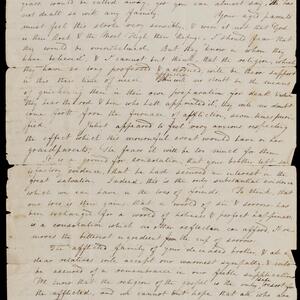 grace would be called away, yet you can almost say, He has
not dealt so with any family.
Your aged parents
must feel the shock very sensibly, & were it not that God
is their Rock & the Most High their Refuge, I should fear that
they would be overwhelmed. But they know in whom they
have believed, & I cannot but think, that the religion, which
they have so long professed & adorned will be their support
in this their time of need.
them in their own preparation for death &
They hear the rod & him who hath appointed it, they will no doubt
come forth from the furnace of affliction, seven times puri-
fied. appeared to feel very anxious respecting
the effect which this would have on her
grandparents. She feared it will be too much for them.
It is a ground for consolation that your brother left
satisfactory evidence, that he had secured an interest in the
great salvation. Indeed, this is the only substantial comfort
which we can have in the loss of friends. To think that
our loss is their gain; that a world of sin & sorrow has
been exchanged for a world of holiness & perfect happiness,
is a consolation which no other reflection can afford. It re-
moves the bitterest ingredient from the cup of sorrow.
The afflicted family of the deceased brother, & all
dear relatives will accept our warmest sympathy, &
be assured of a remembrance in our feeble supplications.
We know that the religion of the gospel is the only resort for
the afflicted, and we cannot but hope that all who are